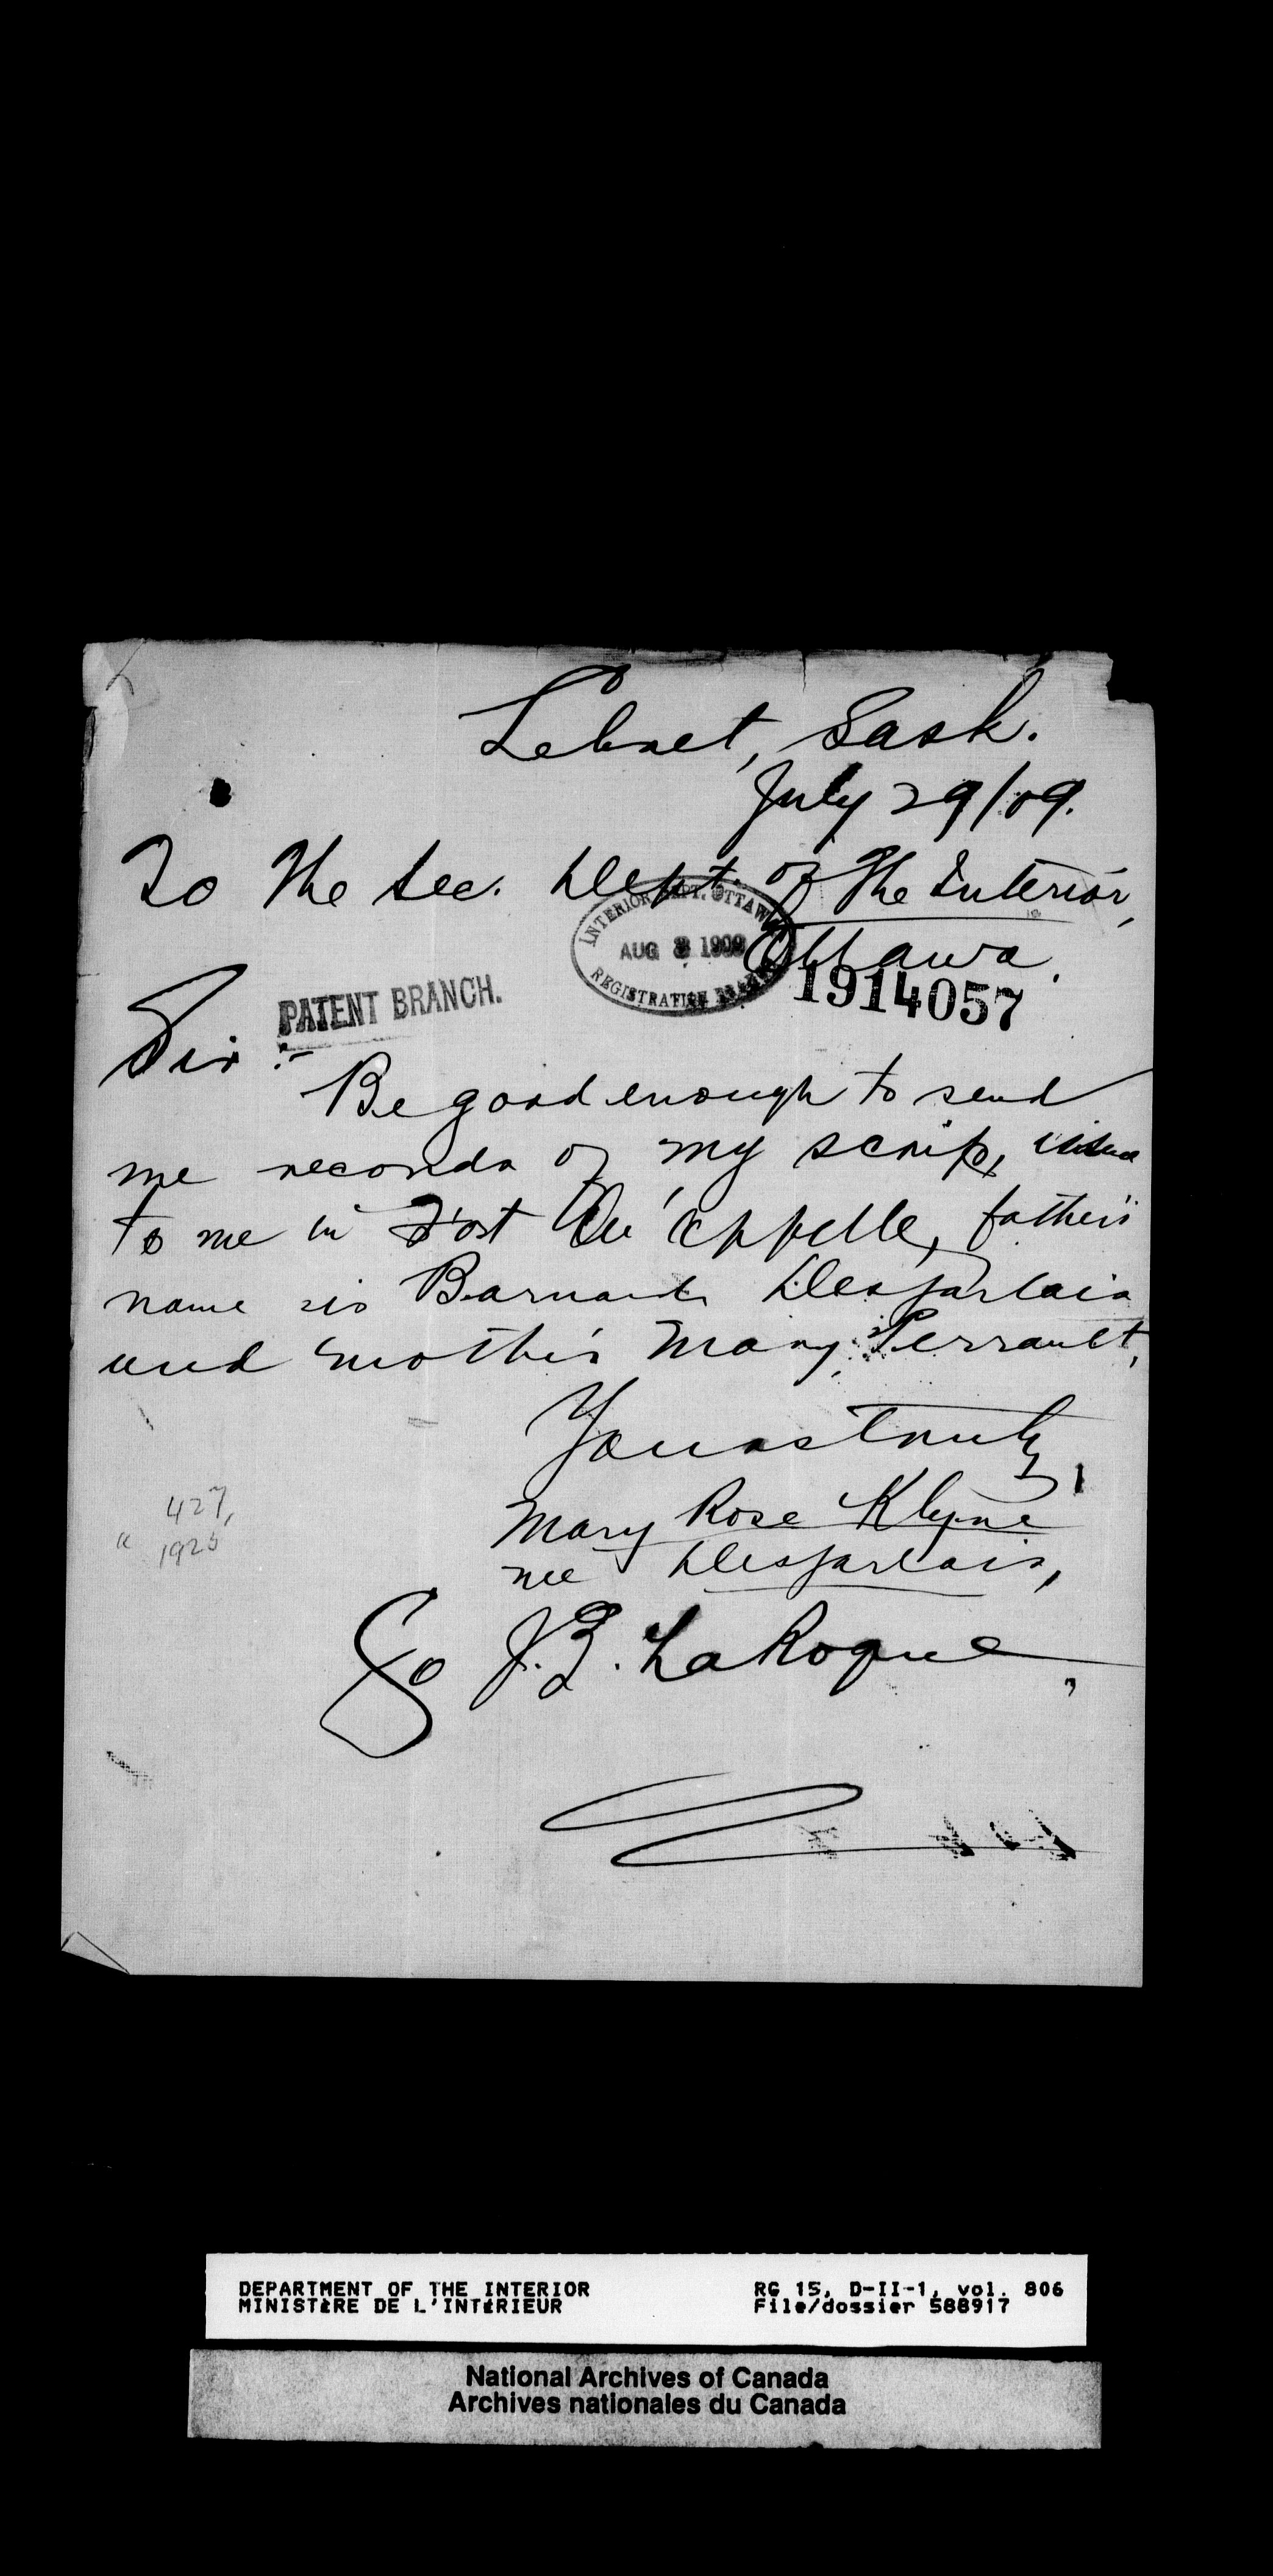 Lebret, Sask.
July 29/09.
To The Sec. Dept. of The Interior,
Ottawa.
INTERIOR DEPT. OTTAWA
AUG 3 1909
REGISTRATION BRANCH
1914057
PATENT BRANCH.
Sir :-
Be good enough to send
me records of my scrip, issued
to me in Fort Qu'appelle, father's
name is Barnard Desjarlais
and mother's Mary Perrault,
Yours truly,
Mary Rose Klyne
nee Desjarlais,
c/o J. Z. LaRoque,
427,
" 1925
DEPARTMENT OF THE INTERIOR
MINISTÈRE DE L'INTÉRIEUR
RG 15, D-II-1, vol. 806
File/dossier 588917
National Archives of Canada
Archives nationales du Canada